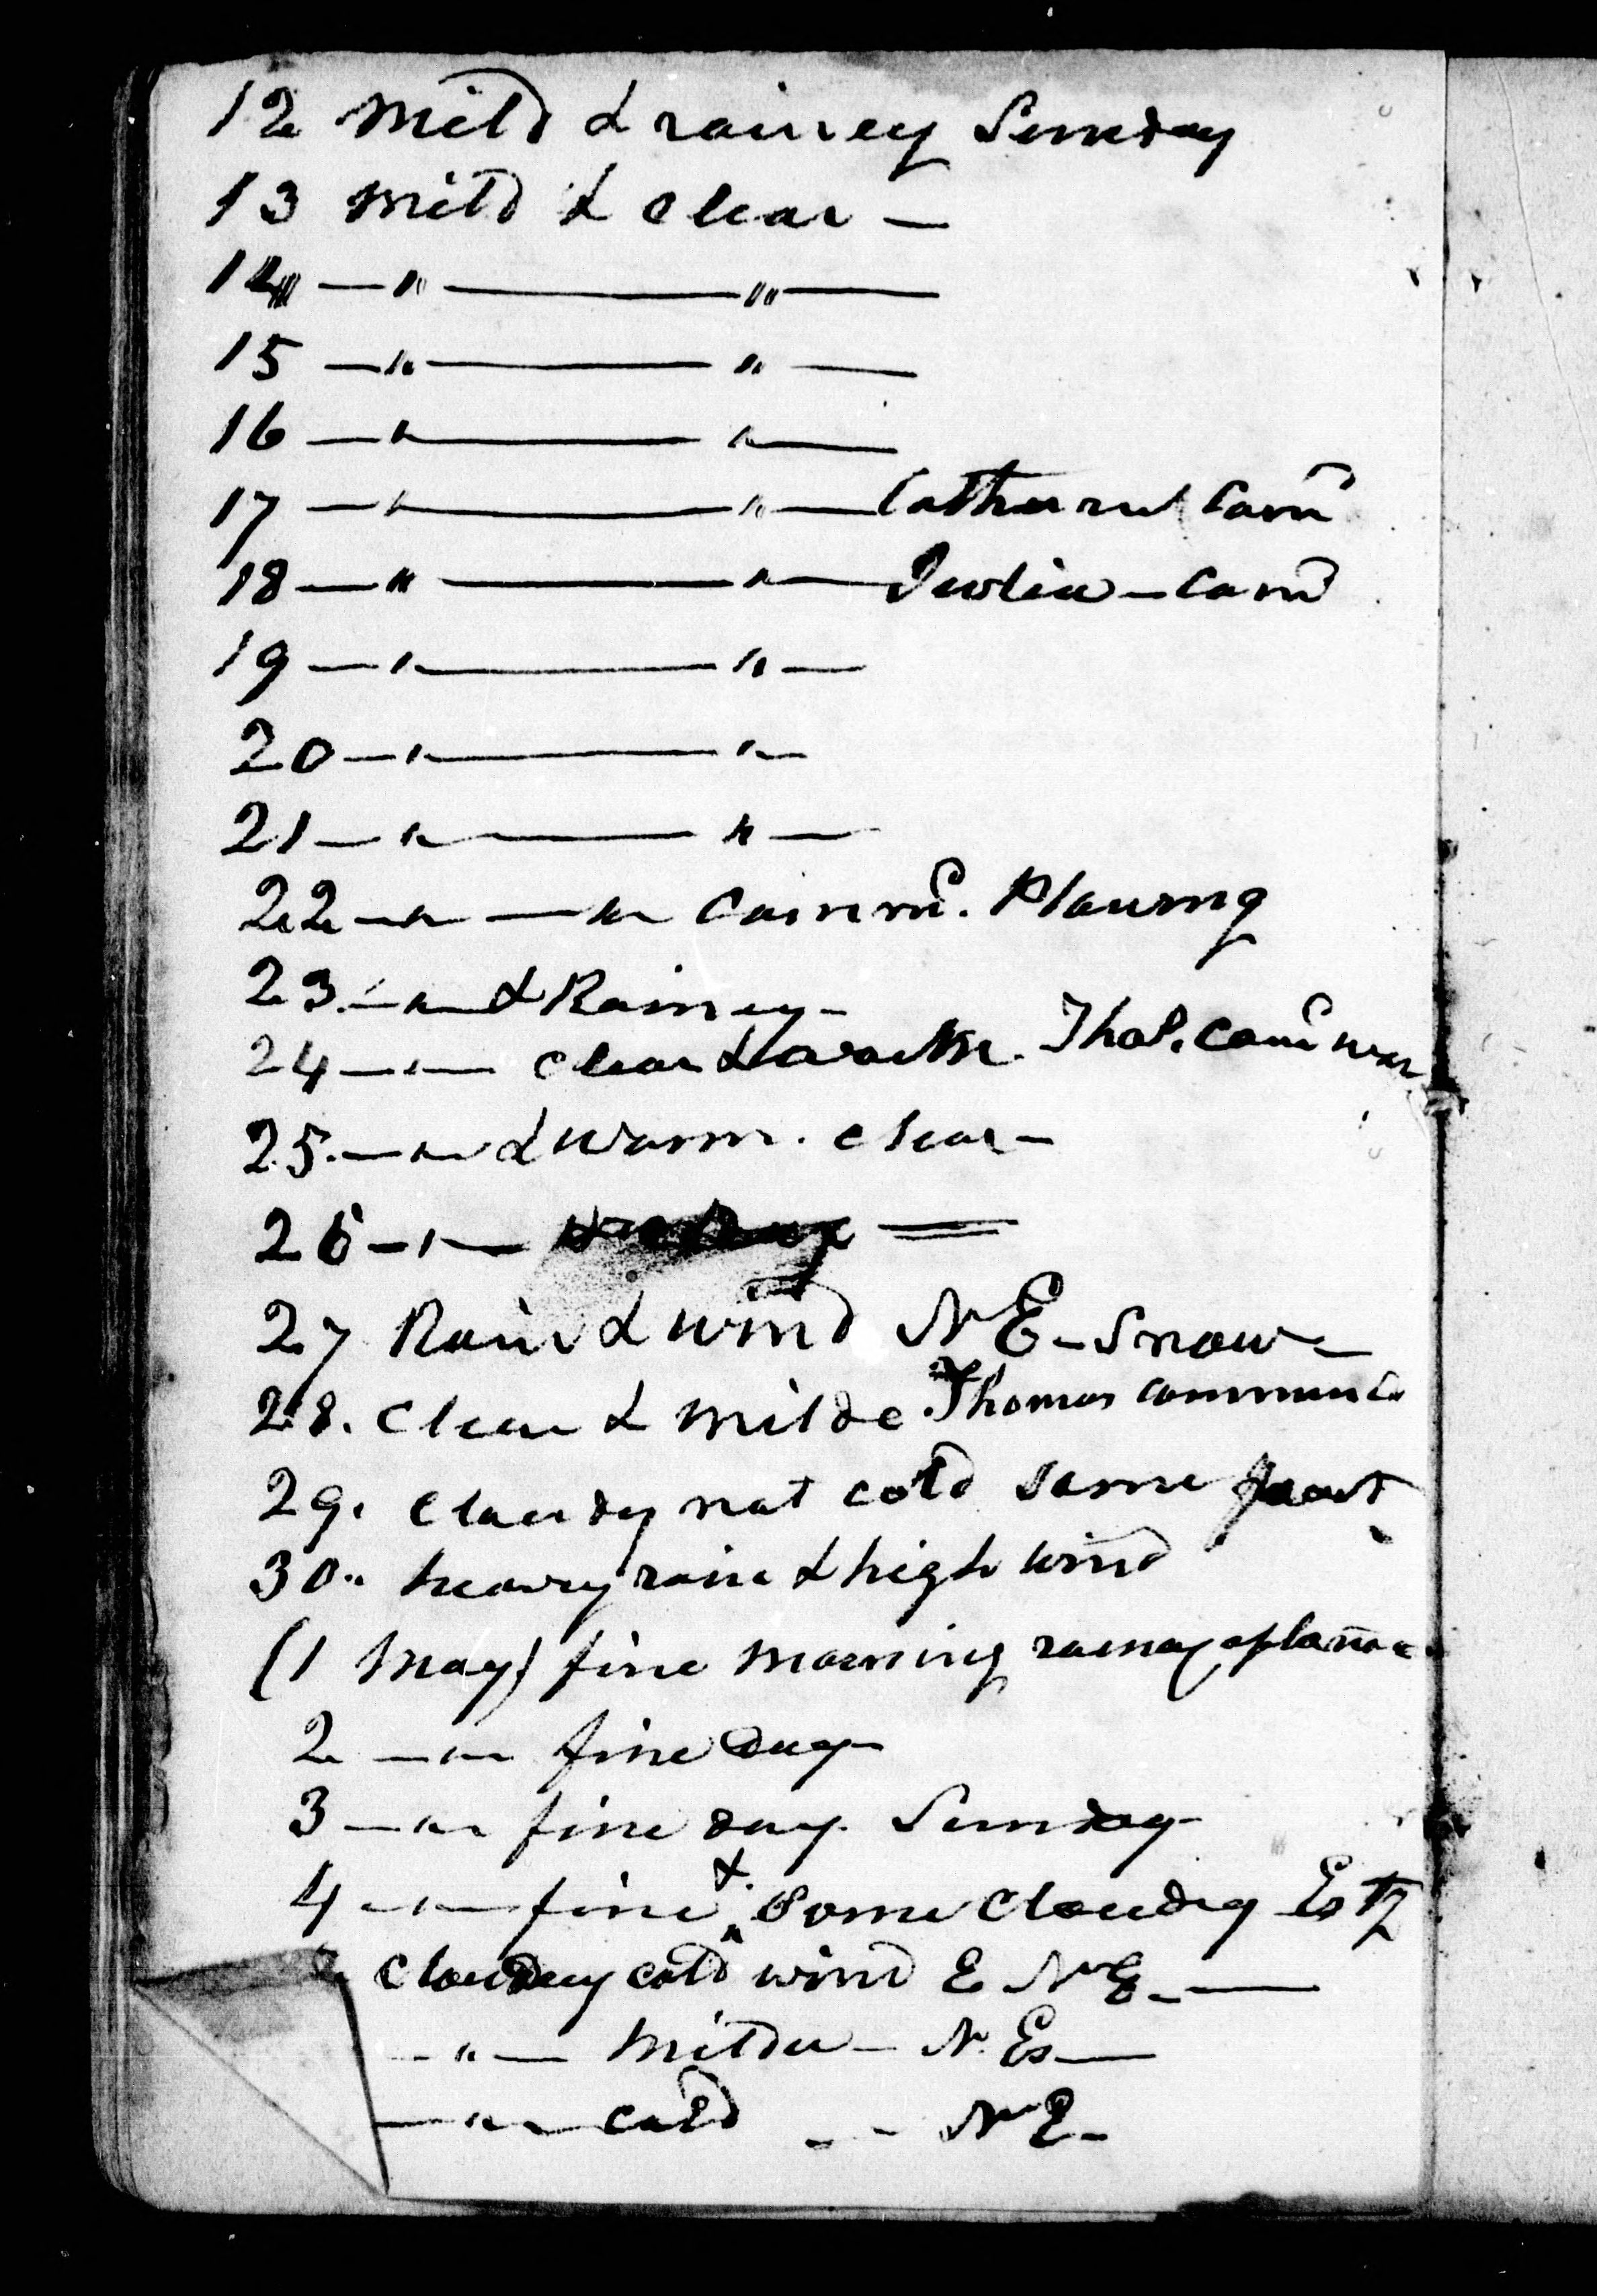 12 Mild & rainey Sunday
13 Mild & Clear —
14 — " ——— " —
15 — " ——— " —
16 — " ——— " —
17 — " ——— " — Catherine Cam
18 — " ——— " — Julia — Cam
19 — " ——— " —
20 — " ——— " —
21 — " ——— " —
22 — " — " Commd. Plowing
23. — " — & Rainey —
24 — " — Clear & warm. Thos. Came
25. — " — & Warm. Clear —
26 — " —
27 Rain & wind N E — Snow —
28. Clear & Milde Thomas
29. Cloudy not cold some frost
30 " heavy rain & high wind
(1 May) fine morning rainey
2 — " — fine day
3 — " — fine day Sunday
4 — " — fine & some Cloudey
Cloudey cold wind E N E —
— " — Milder — N. E —
— " — cold — — N E —